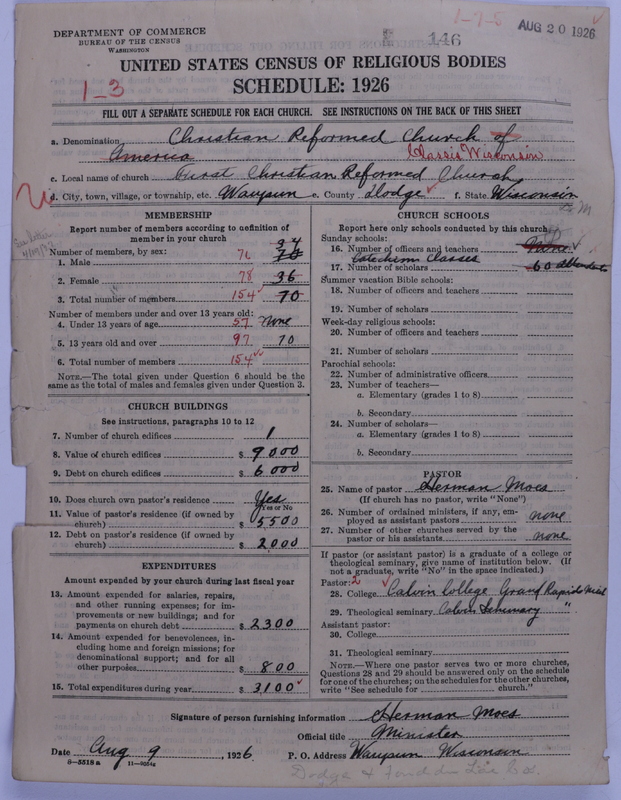 DEPARTMENT OF COMMERCE
BUREAU OF THE CENSUS
WASHINGTON
1-7-5
AUG 20 1926
146
UNITED STATES CENSUS OF RELIGIOUS BODIES
1-3
SCHEDULE: 1926
FILL OUT A SEPARATE SCHEDULE FOR EACH CHURCH. SEE INSTRUCTIONS ON THE BACK OF THIS SHEET
a. Denomination Christian Reformed Church of
America Classis Wisconsin
c. Local name of church First Christian Reformed Church
d. City, town, village, or township, etc. Waupun e. County Dodge f. State Wisconsin
MEMBERSHIP
Report number of members according to definition of
member in your church
Number of members, by sex:
1. Male 76 34
2. Female 78 36
3. Total number of members 154 70
Number of members under and over 13 years old:
4. Under 13 years of age 57 None
5. 13 years old and over 97 70
6. Total number of members 154
NOTE.—The total given under Question 6 should be the
same as the total of males and females given under Question 3.
CHURCH BUILDINGS
See instructions, paragraphs 10 to 12
7. Number of church edifices 1
8. Value of church edifices $ 9000
9. Debt on church edifices $ 6000
10. Does church own pastor's residence Yes
Yes or No
11. Value of pastor's residence (if owned by
church) $ 5500
12. Debt on pastor's residence (if owned by
church) $ 2000
EXPENDITURES
Amount expended by your church during last fiscal year
13. Amount expended for salaries, repairs,
and other running expenses; for im-
provements or new buildings; and for
payments on church debt $ 2300
14. Amount expended for benevolences, in-
cluding home and foreign missions; for
denominational support; and for all
other purposes $ 800
15. Total expenditures during year $ 3100
CHURCH SCHOOLS
Report here only schools conducted by this church
Sunday schools:
16. Number of officers and teachers None
Catechism Classes
17. Number of scholars 60 attendants
Summer vacation Bible schools:
18. Number of officers and teachers
19. Number of scholars
Week-day religious schools:
20. Number of officers and teachers
21. Number of scholars
Parochial schools:
22. Number of administrative officers
23. Number of teachers—
a. Elementary (grades 1 to 8)
b. Secondary
24. Number of scholars—
a. Elementary (grades 1 to 8)
b. Secondary
PASTOR
25. Name of pastor Herman Moes
(If church has no pastor, write "None")
26. Number of ordained ministers, if any, em-
ployed as assistant pastors none
27. Number of other churches served by the
pastor or his assistants none
If pastor (or assistant pastor) is a graduate of a college or
theological seminary, give name of institution below. (If
not a graduate, write "No" in the space indicated.)
Pastor: 2
28. College Calvin College Grand Rapids Mich
29. Theological seminary Calvin Seminary "
Assistant pastor:
30. College
31. Theological seminary
NOTE.—Where one pastor serves two or more churches,
Questions 28 and 29 should be answered only on the schedule
for one of the churches; on the schedules for the other churches,
write "See schedule for church."
Signature of person furnishing information Herman Moes
Official title Minister
Date Aug 9, 1926 P. O. Address Waupun Wisconsin
8-5518a 11-9054a
Dodge & Fond du Lac Co.